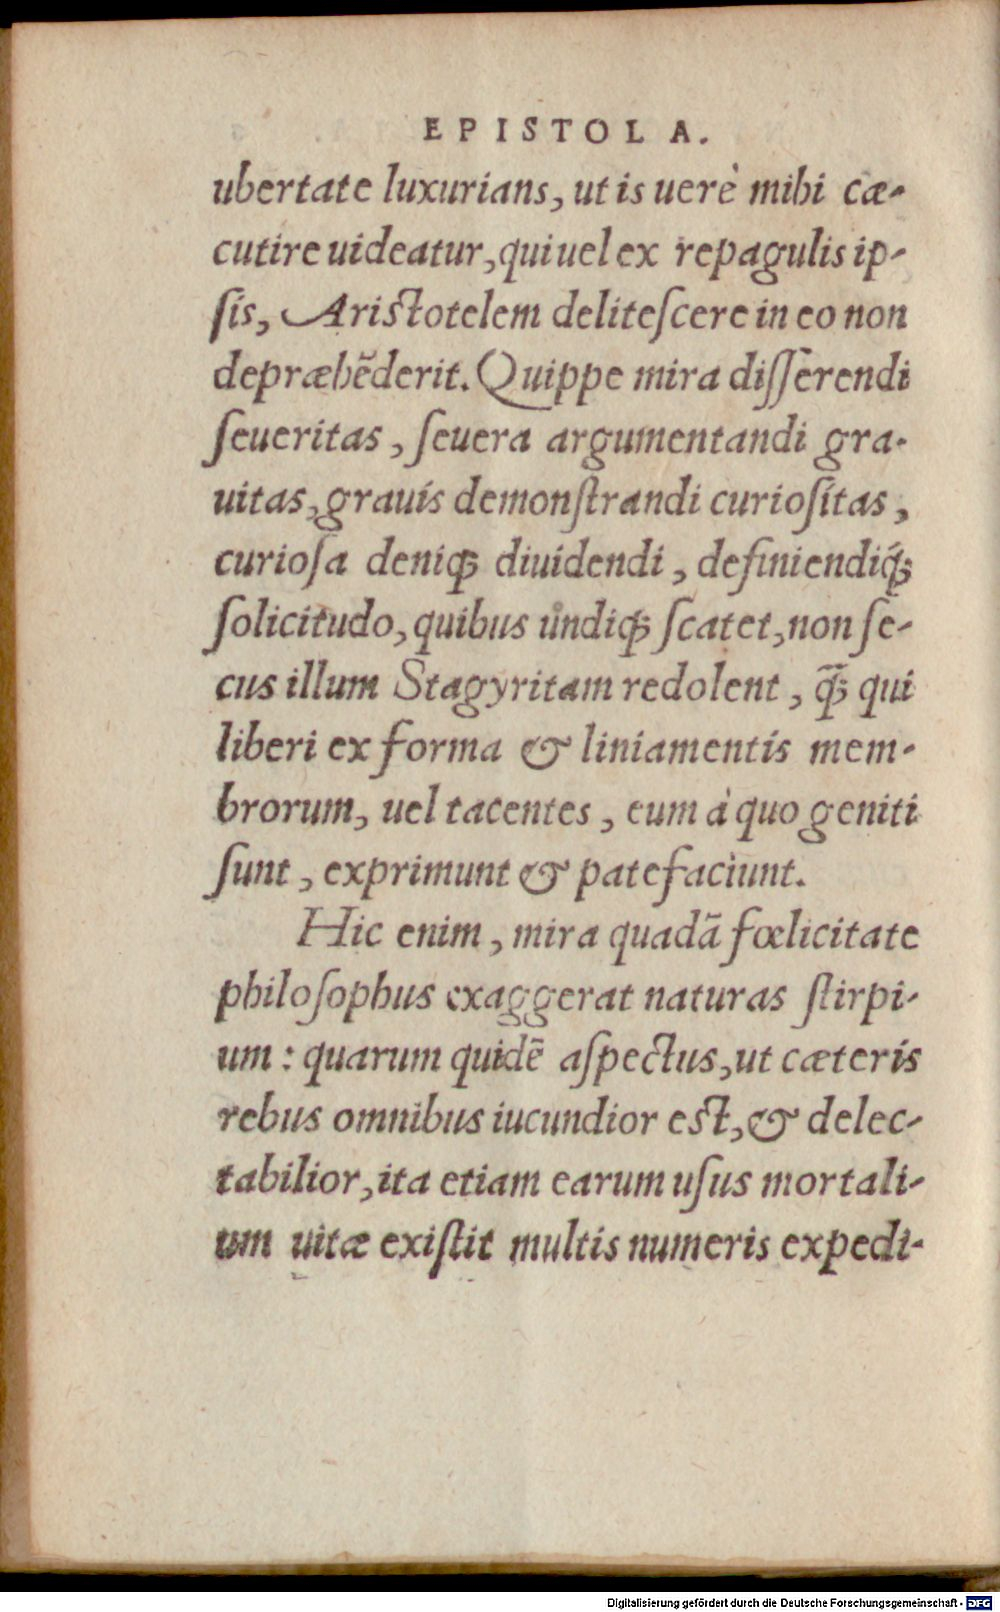 EPISTOLA.
ubertate luxurians, ut is uerè mihi cæ-
cutire uideatur, qui uel ex repagulis ip-
sis, Aristotelem delitescere in eo non
depræhẽderit. Quippe mira disserendi
seueritas, seuera argumentandi gra-
uitas, grauis demonstrandi curiositas,
curiosa deniqꝫ diuidendi, definiendiq́ꝫ
solicitudo, quibus undiqꝫ scatet, non se-
cus illum Stagyritam redolent, q̃ꝫ qui
liberi ex forma & liniamentis mem-
brorum, uel tacentes, eum à quo geniti
sunt, exprimunt & patefaciunt.
Hic enim, mira quadã fœlicitate
philosophus exaggerat naturas stirpi-
um: quarum quidẽ aspectus, ut cæteris
rebus omnibus iucundior est, & delec-
tabilior, ita etiam earum usus mortali-
um uitæ existit multis numeris expedi-
Digitalisierung gefördert durch die Deutsche Forschungsgemeinschaft - DFG